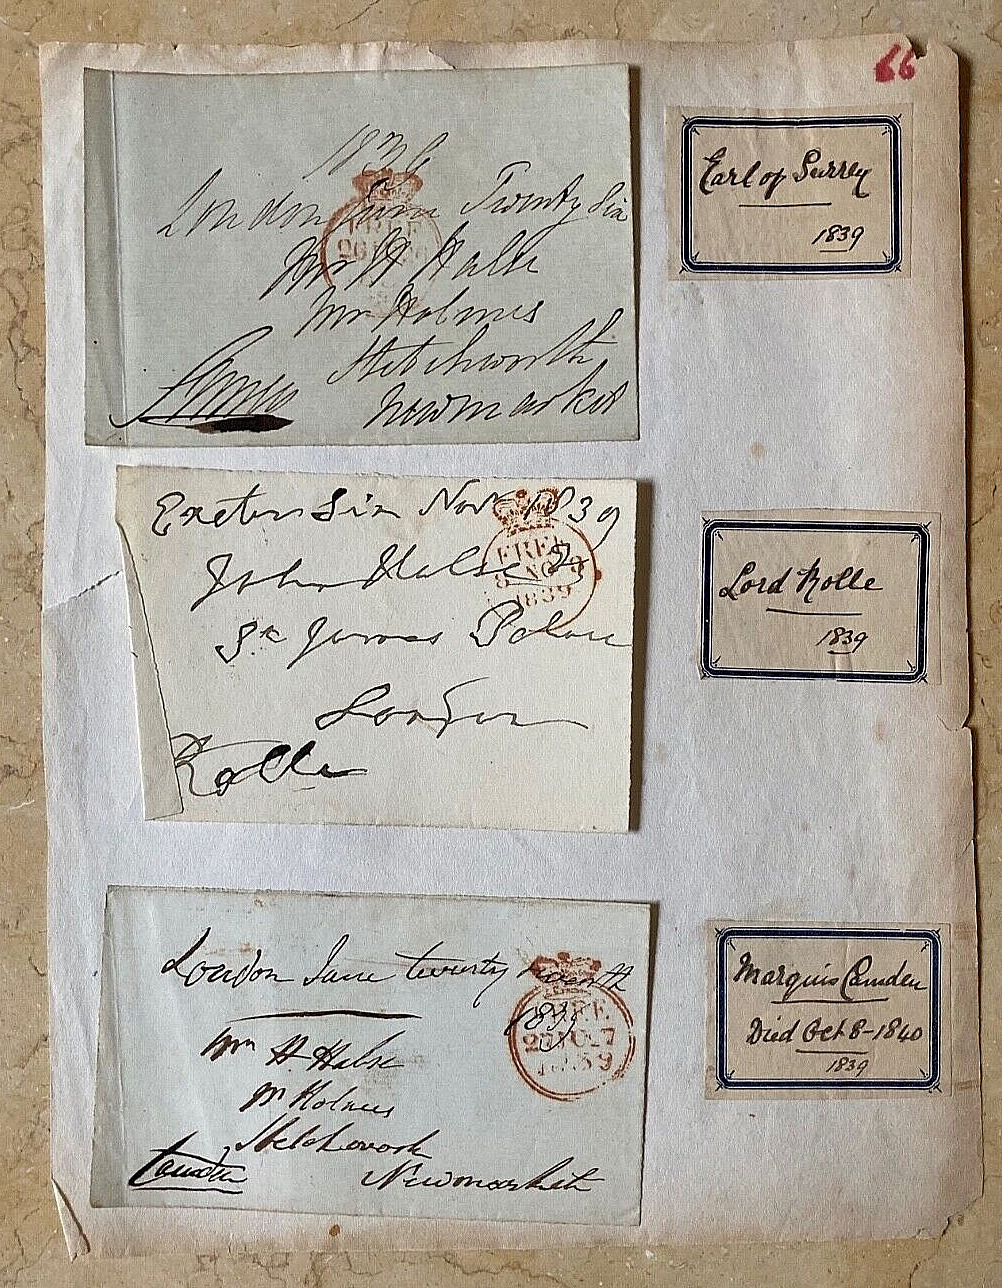 66
London June Twenty Six
FREE
Mr H Halse
Mr Holmes
Stetchworth
Newmarket
Earl of Surrey
1839
Exeter Six Nov 1839
FREE
8 NO 8
1839
John Halse
St James Palace
London
Rolle
Lord Rolle
1839
London June twenty
1839
Wm H. Halse
Mr Holmes
Newmarket
Camden
Marquis Camden
Died Oct 8-1840
1839